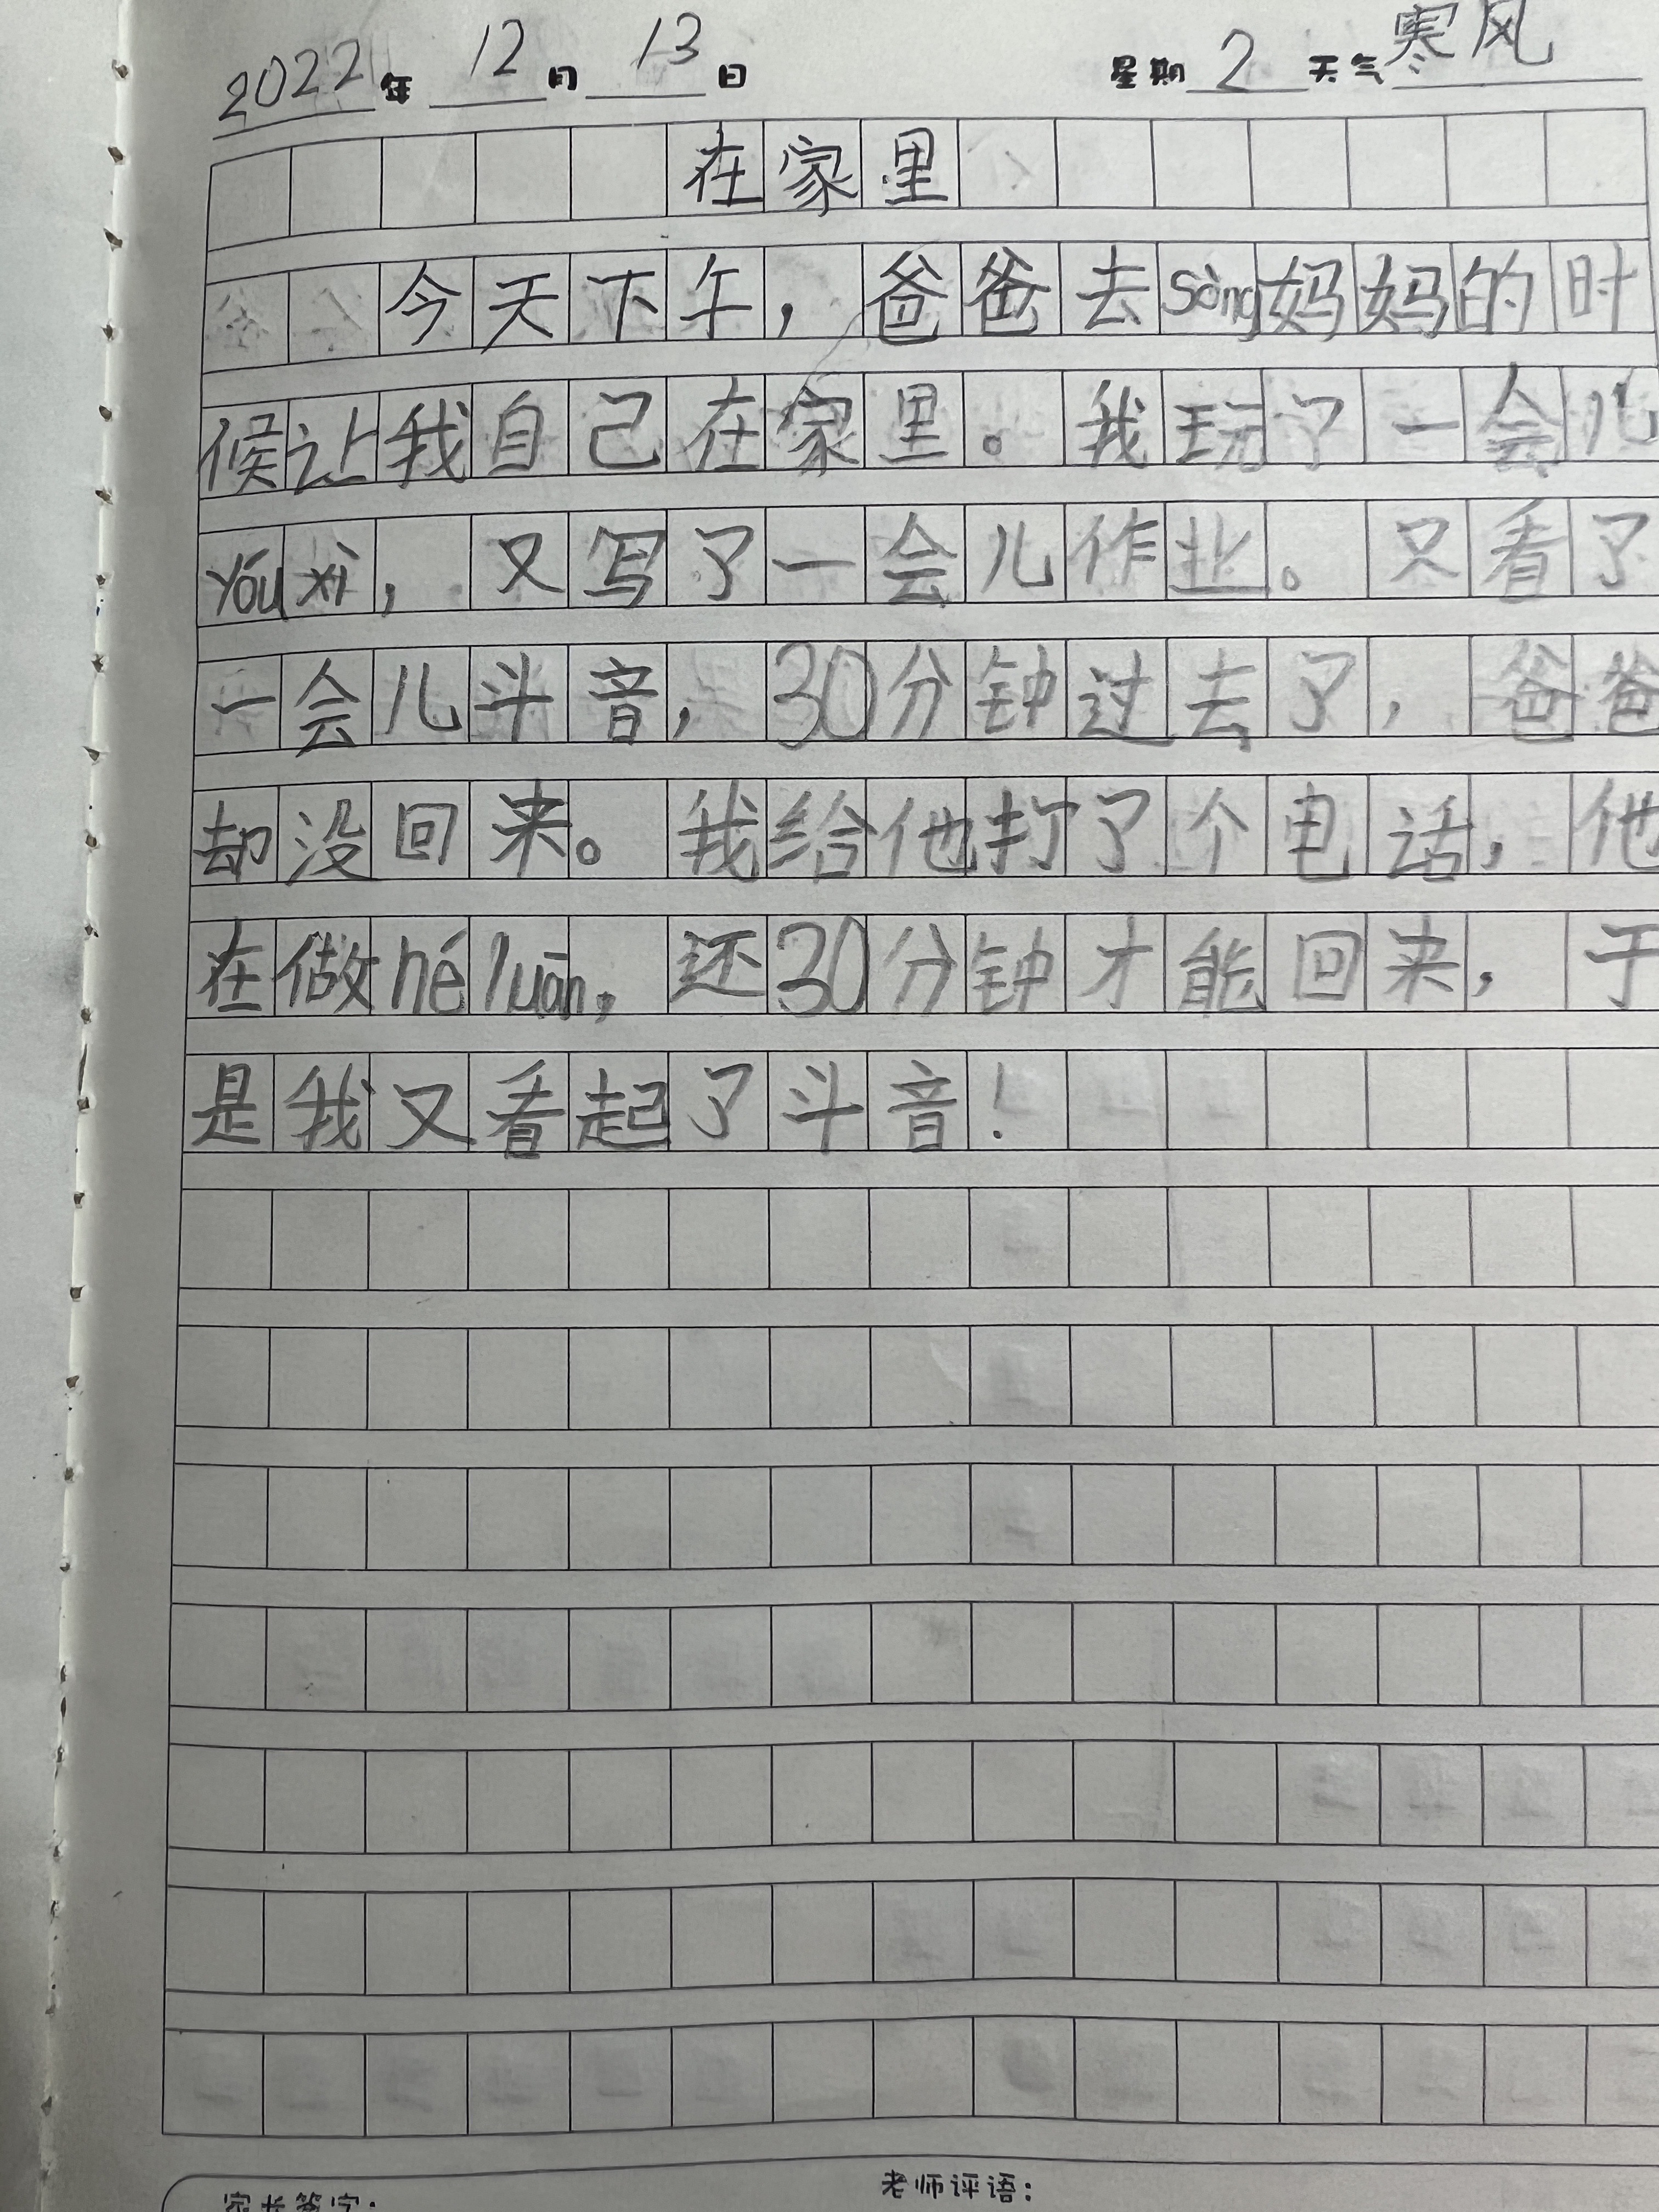 2022年 12月 13日 星期2天气寒风
在家里
今天下午，爸爸去sòng妈妈的时
候让我自己在家里。我玩了一会儿
yóu xì，又写了一会儿作业。又看了
一会儿斗音，30分钟过去了，爸爸
却没回来。我给他打了个电话，他
在做hé luān，还30分钟才能回来，于
是我又看起了斗音！
老师评语：
家长签字：